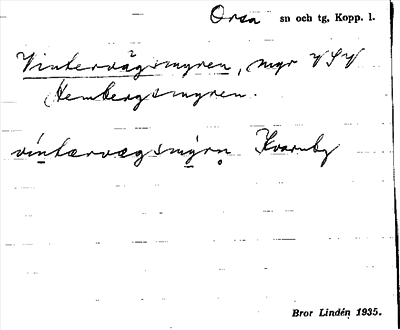 Orsa sn och tg, Kopp. l.
Vintervägsmyren, myr VSV
Hembergsmyren.
vìntærvægsmýrn̥ Kvarnby
Bror Lindén 1935.